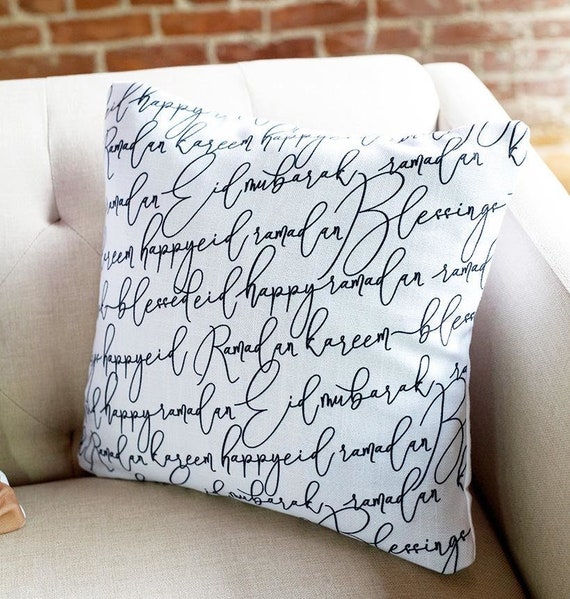 eid happy
Ramadan kareem happyeid ramadan
amadan Eid mubarak ramadan k
areem happyeid ramadan Blessings
blessedeid happy ramadan ramad
happyeid Ramadan kareem bless
happy ramadan Eid mubarak ra
Ramadan kareem happyeid ramadan B
mubarak ramadan
Blessings